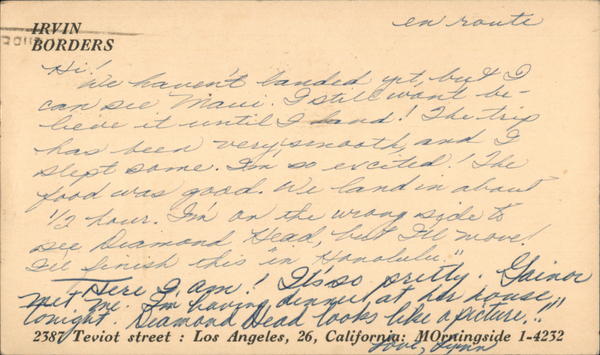 IRVIN
BORDERS
en route
Hi!
We haven't landed yet, but I
can see Maui. I still won't be-
lieve it until I land! The trip
has been very smooth, and I
slept some. I'm so excited! The
food was good. We land in about
1/2 hour. I'm on the wrong side to
see Diamond Head, but I'll move!
I'll finish this in Honolulu."
Here I am! It's so pretty. Gainor
met me. I'm having dinner at her house
tonight. Diamond Head looks like a picture!"
2387 Teviot street : Los Angeles, 26, California: MOrningside 1-4232
Love, Lynn